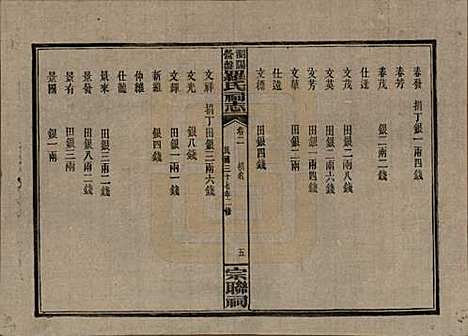 春發 捐丁銀一兩四錢
春芳
春茂 銀二兩二錢
仕達
文茂 田銀二兩八錢
文英 田銀二兩六錢
文芳 田銀一兩四錢
文華 田銀四錢
仕遠
文標 田銀四錢
羅氏祠志
卷二
民國三十七年二修
五
宗聯祠
文祥 捐丁銀三兩六錢
文光 銀八錢
文鐸 田銀一兩一錢
新雛 銀四錢
仲雛
仕龍
景來 田銀三兩二錢
景發 田銀八兩二錢
景有 田銀二錢
景國 銀一兩